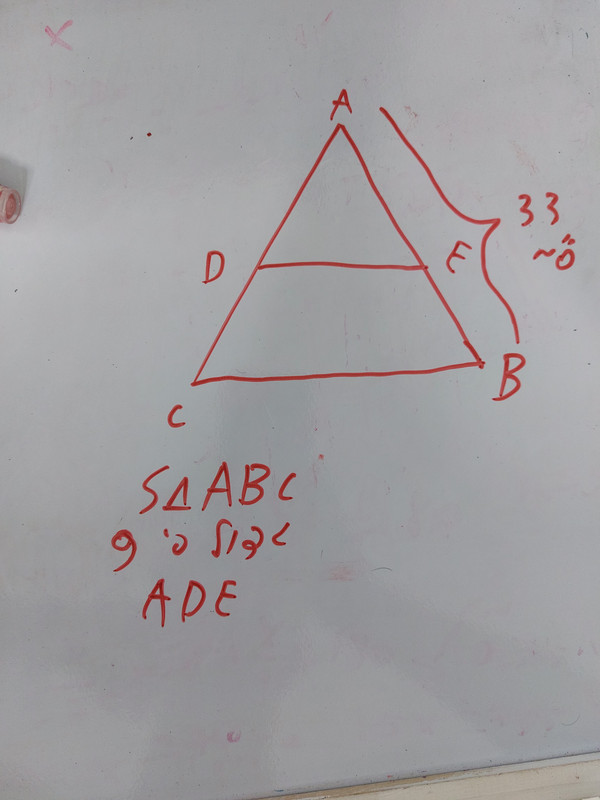 A
D
E
33
ס"מ
B
C
S△ABC
גדול פי 9
ADE